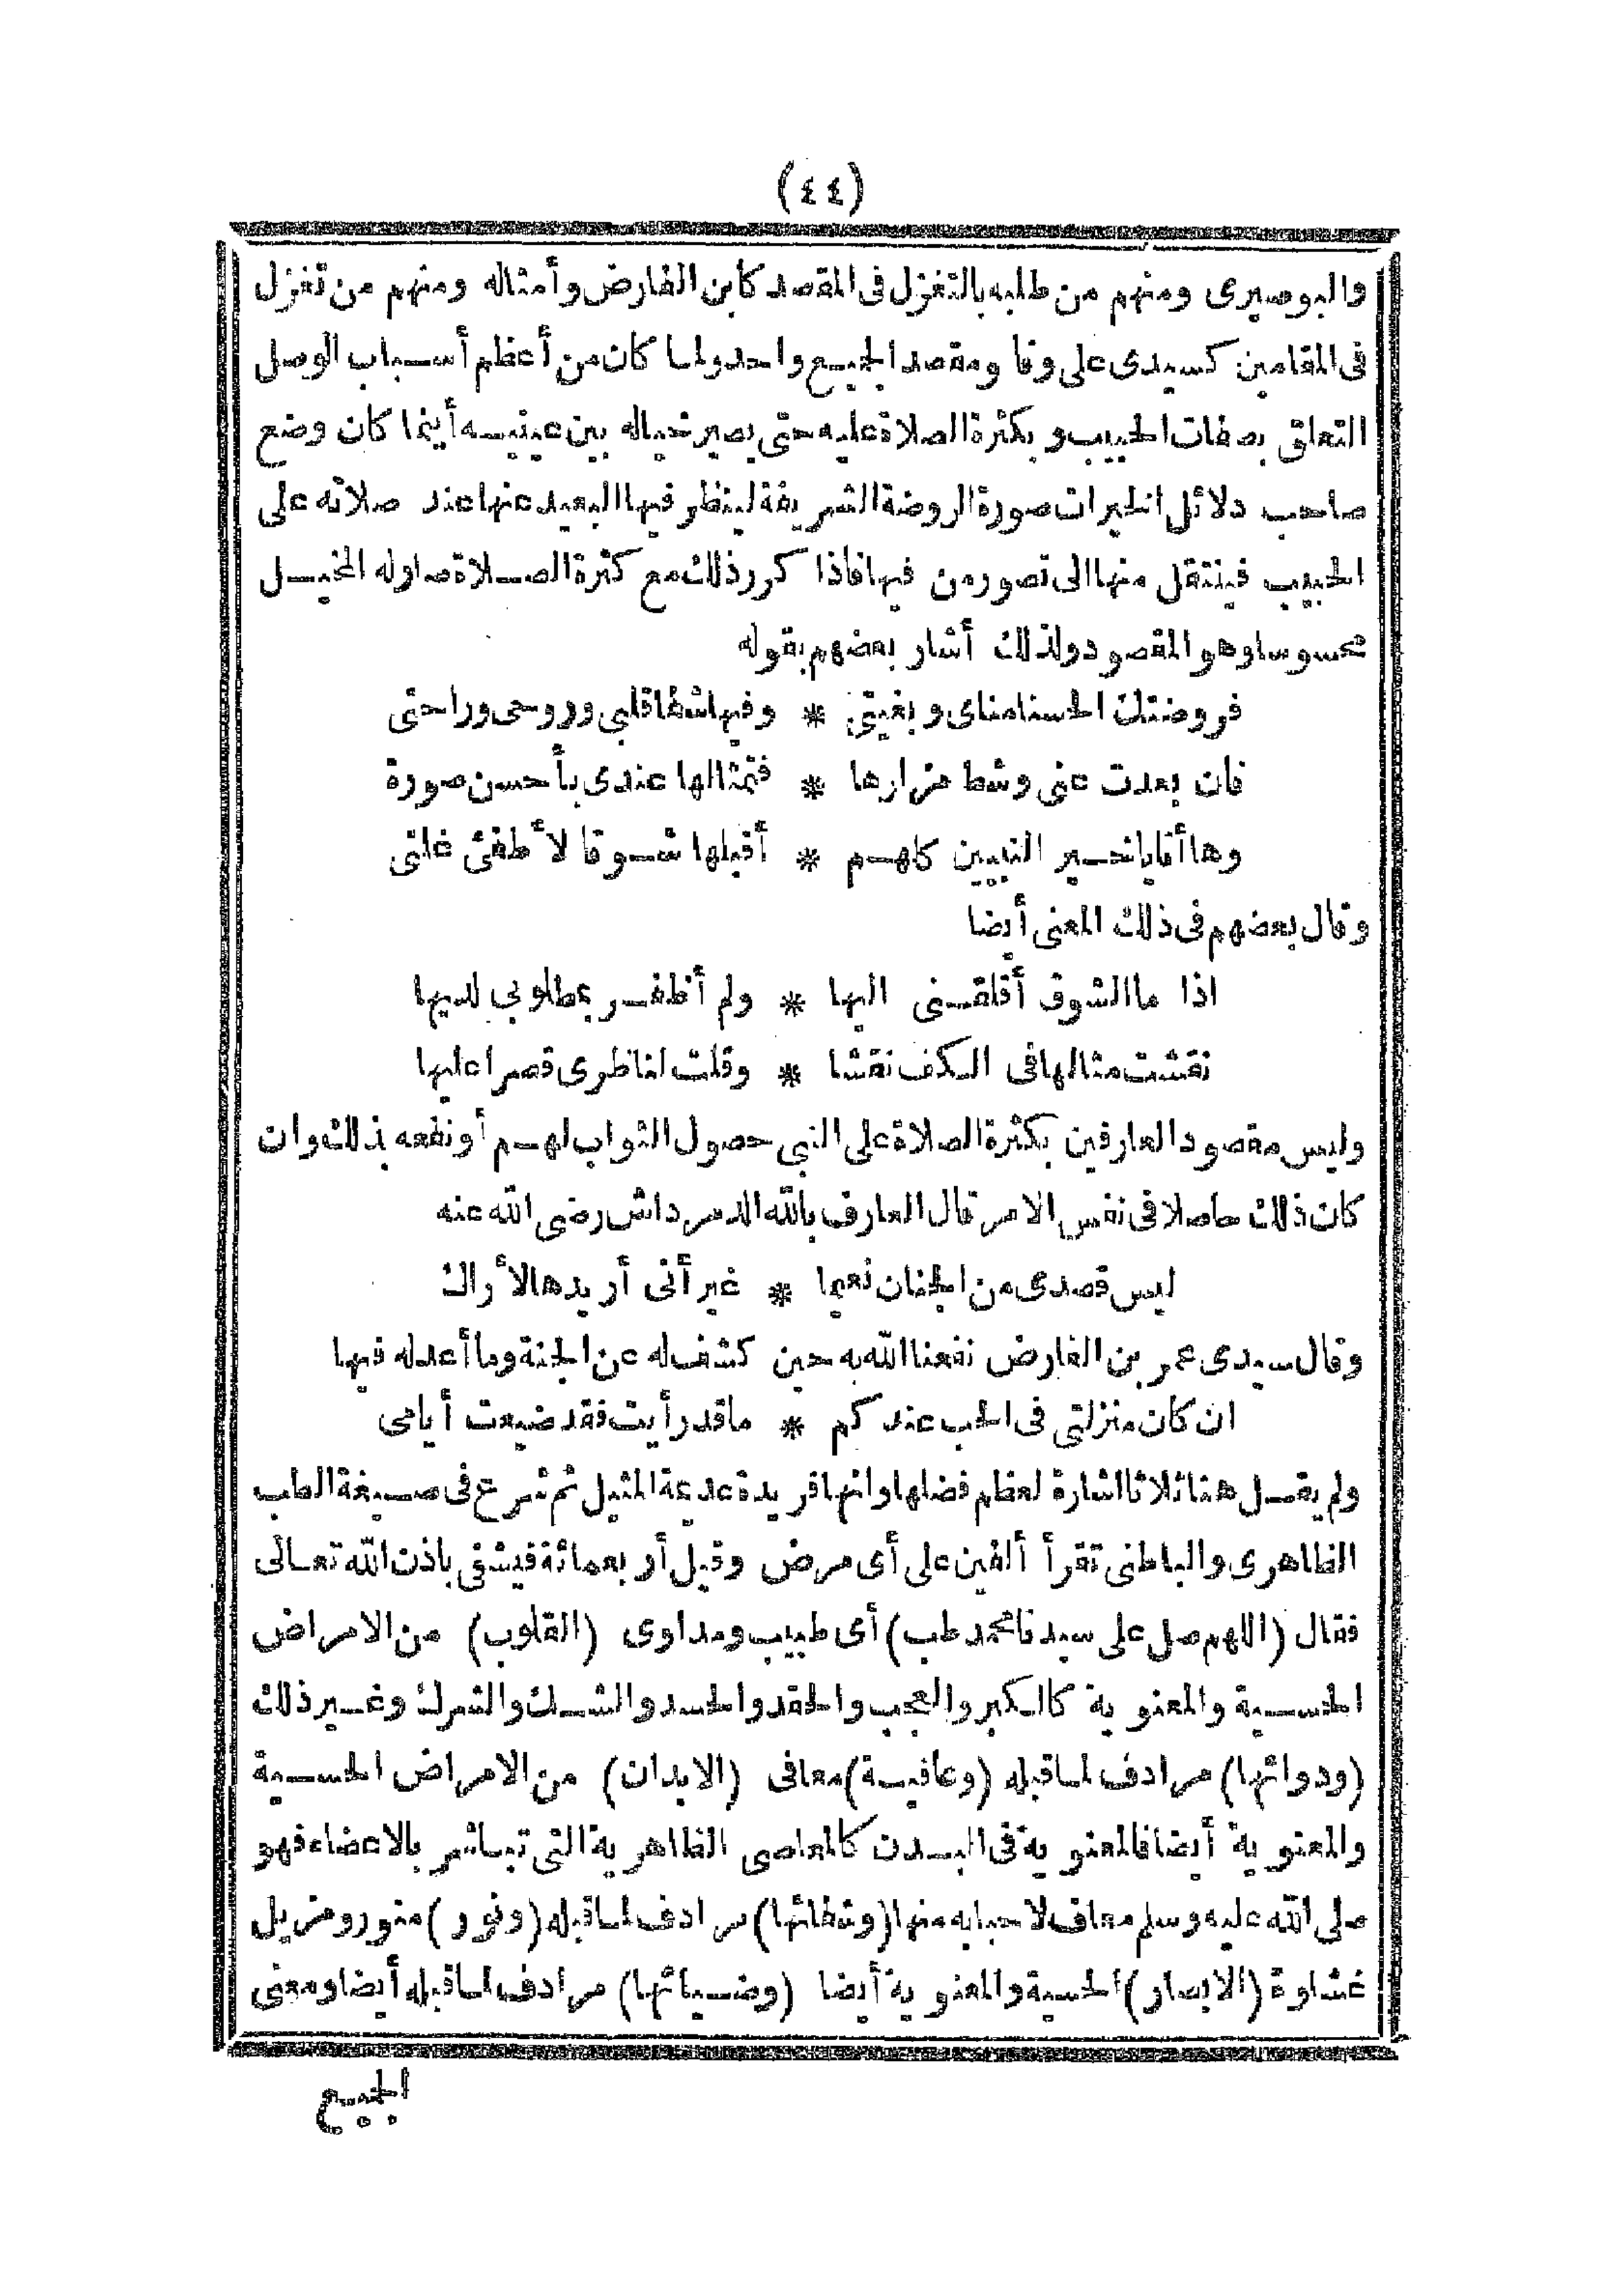 (٤٤)
والبوصيرى ومنهم من طلبه بالتغزل فى المقصد كأبن الفارض وأمثاله ومنهم من تغزل
فى المقامين كسيدى على وفا ومقصد الجميع واحد ولما كان من أعظم أسباب الوصل
التعلق بصفات الحبيب وبكثرة الصلاة عليه حتى يصير خياله بين عينيه أينما كان وضع
صاحب دلائل الخيرات صورة الروضة الشريفة لينظر فيها البعيد عنها عند صلاته على
الحبيب فينتقل منها الى تصور من فيها فاذا كرر ذلك مع كثرة الصلاة صار له المخيل
محسوسا وهو المقصود ولذلك أشار بعضهم بقوله
فروضتك الحسنا مناى وبغيتى * وفيها شفا قلبى وروحى وراحتى
فان بعدت عنى وشط مزارها * فتمثالها عندى بأحسن صورة
وها أنا يا خير النبيين كلهم * أقبلها شوقا لأطفئ غلتى
وقال بعضهم فى ذلك المعنى أيضا
اذا ما الشوق أقلقنى اليها * ولم أظفر بمطلوبى لديها
نقشت مثالها فى الكف نقشا * وقلت لناظرى قصرا عليها
وليس مقصود العارفين بكثرة الصلاة على النبى حصول الثواب لهم أو نفعه بذلك وان
كان ذلك حاصلا فى نفس الامر قال العارف بالله الدمرداش رضى الله عنه
ليس قصدى من الجنان نعيما * غير أنى أريدها لأراك
وقال سيدى عمر بن الفارض نفعنا الله به حين كشف له عن الجنة وما أعد له فيها
ان كان منزلتى فى الحب عندكم * ما قد رأيت فقد ضيعت أيامى
ولم يقل هنا ثلاثا اشارة لعظم فضلها وانها فريدة عديمة المثيل ثم شرع فى صيغة الطب
الظاهرى والباطنى تقرأ ألفين على أى مرض وقيل أربعمائة فيشفى باذن الله تعالى
فقال (اللهم صل على سيدنا محمد طب) أى طبيب ومداوى (القلوب) من الامراض
الحسية والمعنوية كالكبر والعجب والحقد والحسد والشك والشرك وغير ذلك
(ودوائها) مرادف لما قبله (وعافية) معافى (الابدان) من الامراض الحسية
والمعنوية أيضا فالمعنوية فى البدن كالمعاصى الظاهرية التى تباشر بالاعضاء فهو
صلى الله عليه وسلم معاف لاحبابه منها (وشفائها) مرادف لما قبله (ونور) منور ومزيل
غشاوة (الابصار) الحسية والمعنوية أيضا (وضيائها) مرادف لما قبله أيضا ومعنى
الجميع